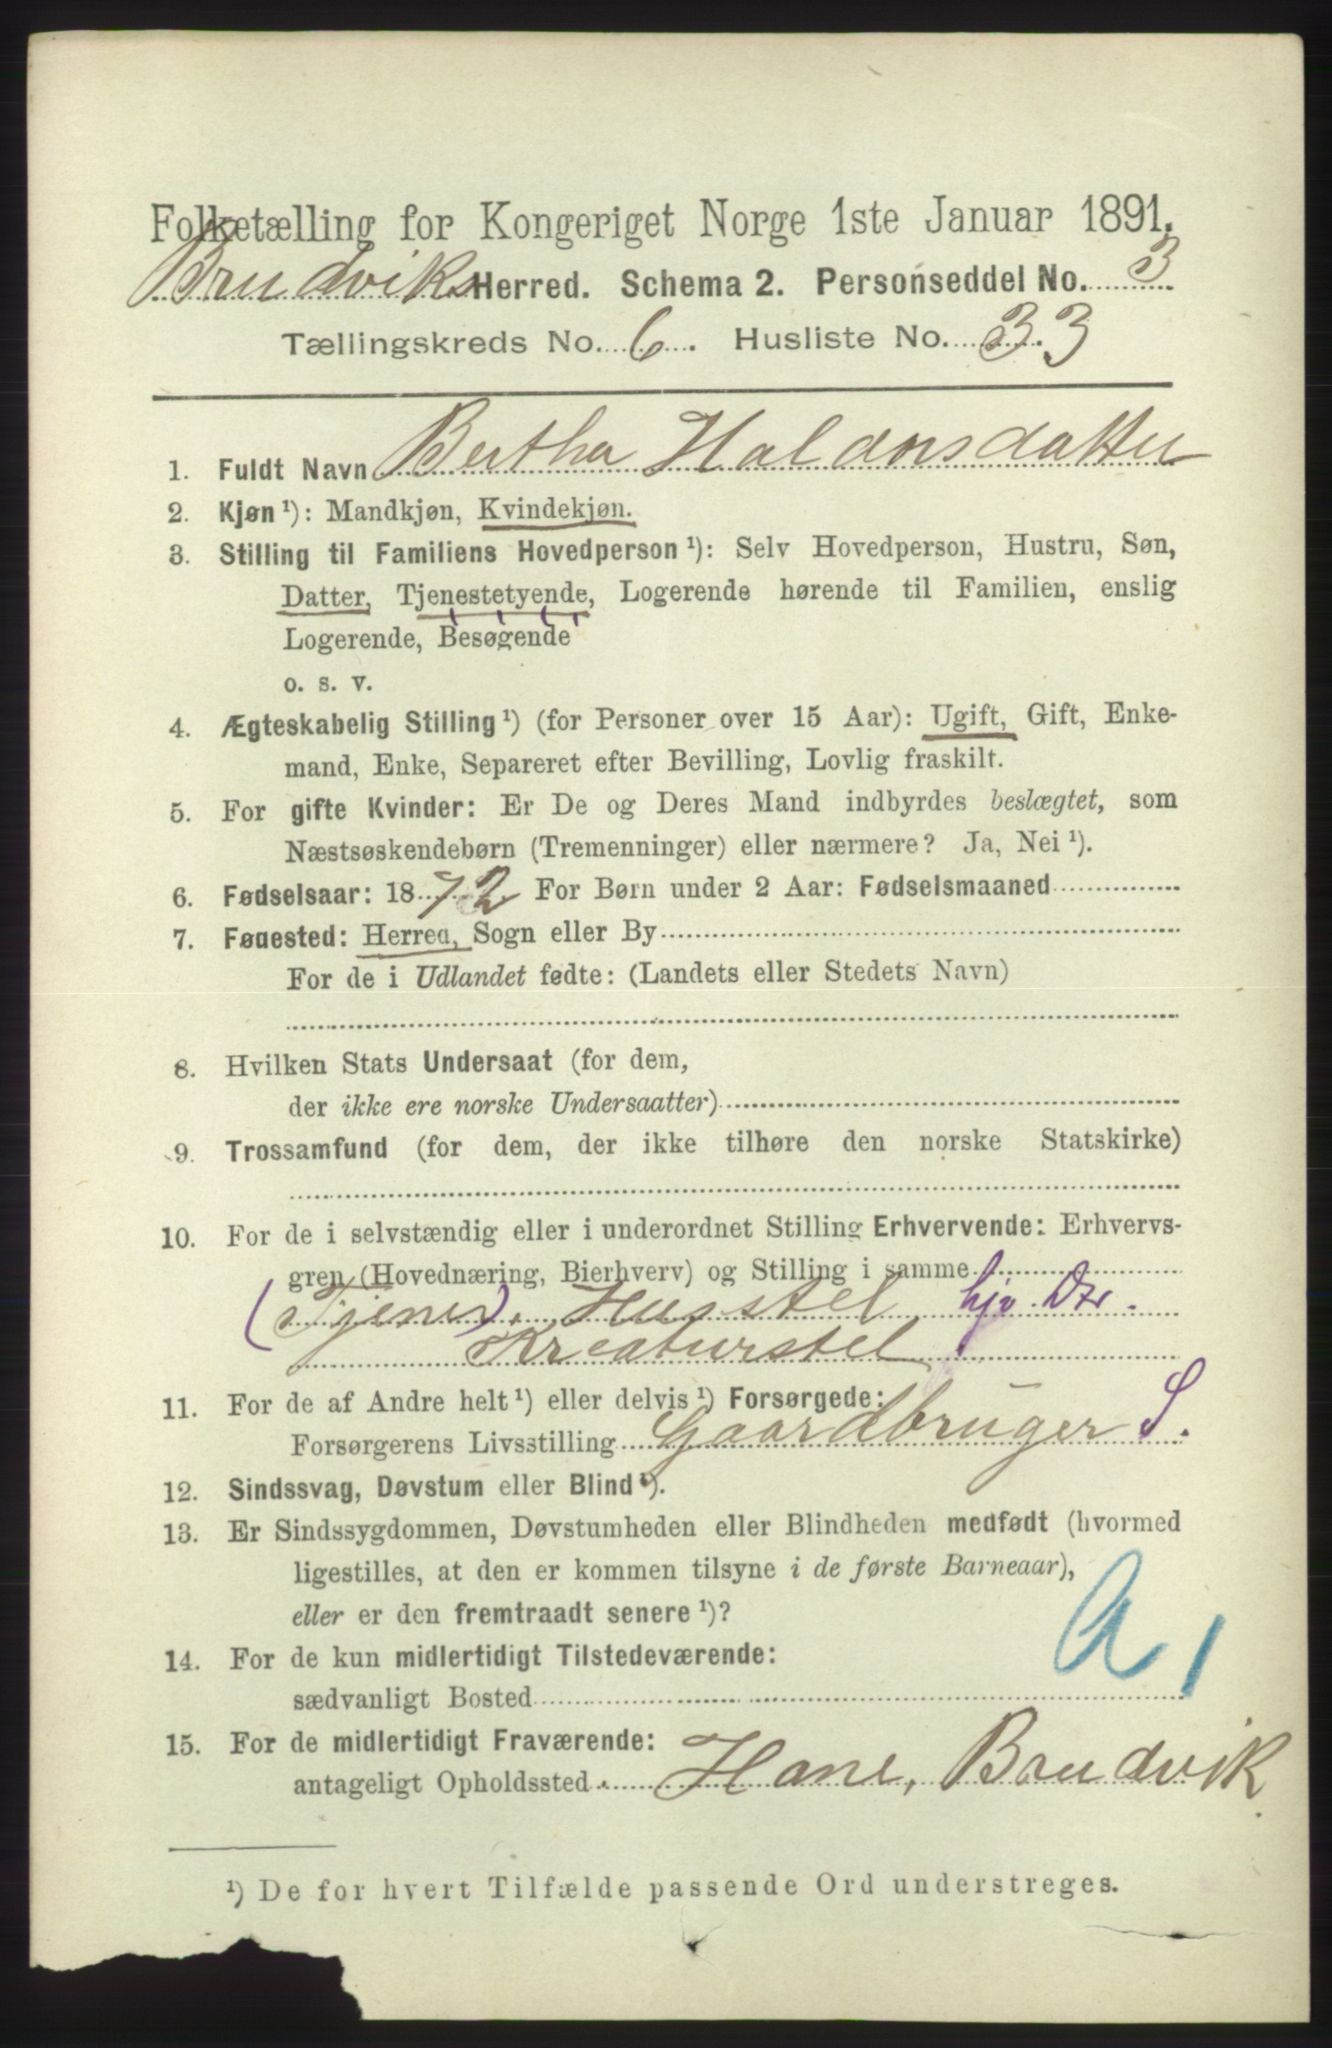 Folketælling for Kongeriget Norge 1ste Januar 1891.
Brudviks Herred. Schema 2. Personseddel No. 3
Tællingskreds No. 6. Husliste No. 33
1. Fuldt Navn Bertha Haldorsdatter
2. Kjøn ¹): Mandkjøn, Kvindekjøn.
3. Stilling til Familiens Hovedperson ¹): Selv Hovedperson, Hustru, Søn,
Datter, Tjenestetyende, Logerende hørende til Familien, enslig
Logerende, Besøgende
o. s. v.
4. Ægteskabelig Stilling ¹) (for Personer over 15 Aar): Ugift, Gift, Enke-
mand, Enke, Separeret efter Bevilling, Lovlig fraskilt.
5. For gifte Kvinder: Er De og Deres Mand indbyrdes beslægtet, som
Næstsøskendebørn (Tremenninger) eller nærmere? Ja, Nei ¹).
6. Fødselsaar: 1872 For Børn under 2 Aar: Fødselsmaaned
7. Fødested: Herred, Sogn eller By
For de i Udlandet fødte: (Landets eller Stedets Navn)
8. Hvilken Stats Undersaat (for dem,
der ikke ere norske Undersaatter)
9. Trossamfund (for dem, der ikke tilhøre den norske Statskirke)
10. For de i selvstændig eller i underordnet Stilling Erhvervende: Erhvervs-
gren (Hovednæring, Bierhverv) og Stilling i samme
(Tjener). Husstel hjv. Dtr.
Kreaturstel
11. For de af Andre helt ¹) eller delvis ¹) Forsørgede:
Forsørgerens Livsstilling Gaardbruger S.
12. Sindssvag, Døvstum eller Blind ¹).
13. Er Sindssygdommen, Døvstumheden eller Blindheden medfødt (hvormed
ligestilles, at den er kommen tilsyne i de første Barneaar),
eller er den fremtraadt senere ¹)?
14. For de kun midlertidigt Tilstedeværende:
sædvanligt Bosted
A 1
15. For de midlertidigt Fraværende:
antageligt Opholdssted Hane, Brudvik
¹) De for hvert Tilfælde passende Ord understreges.